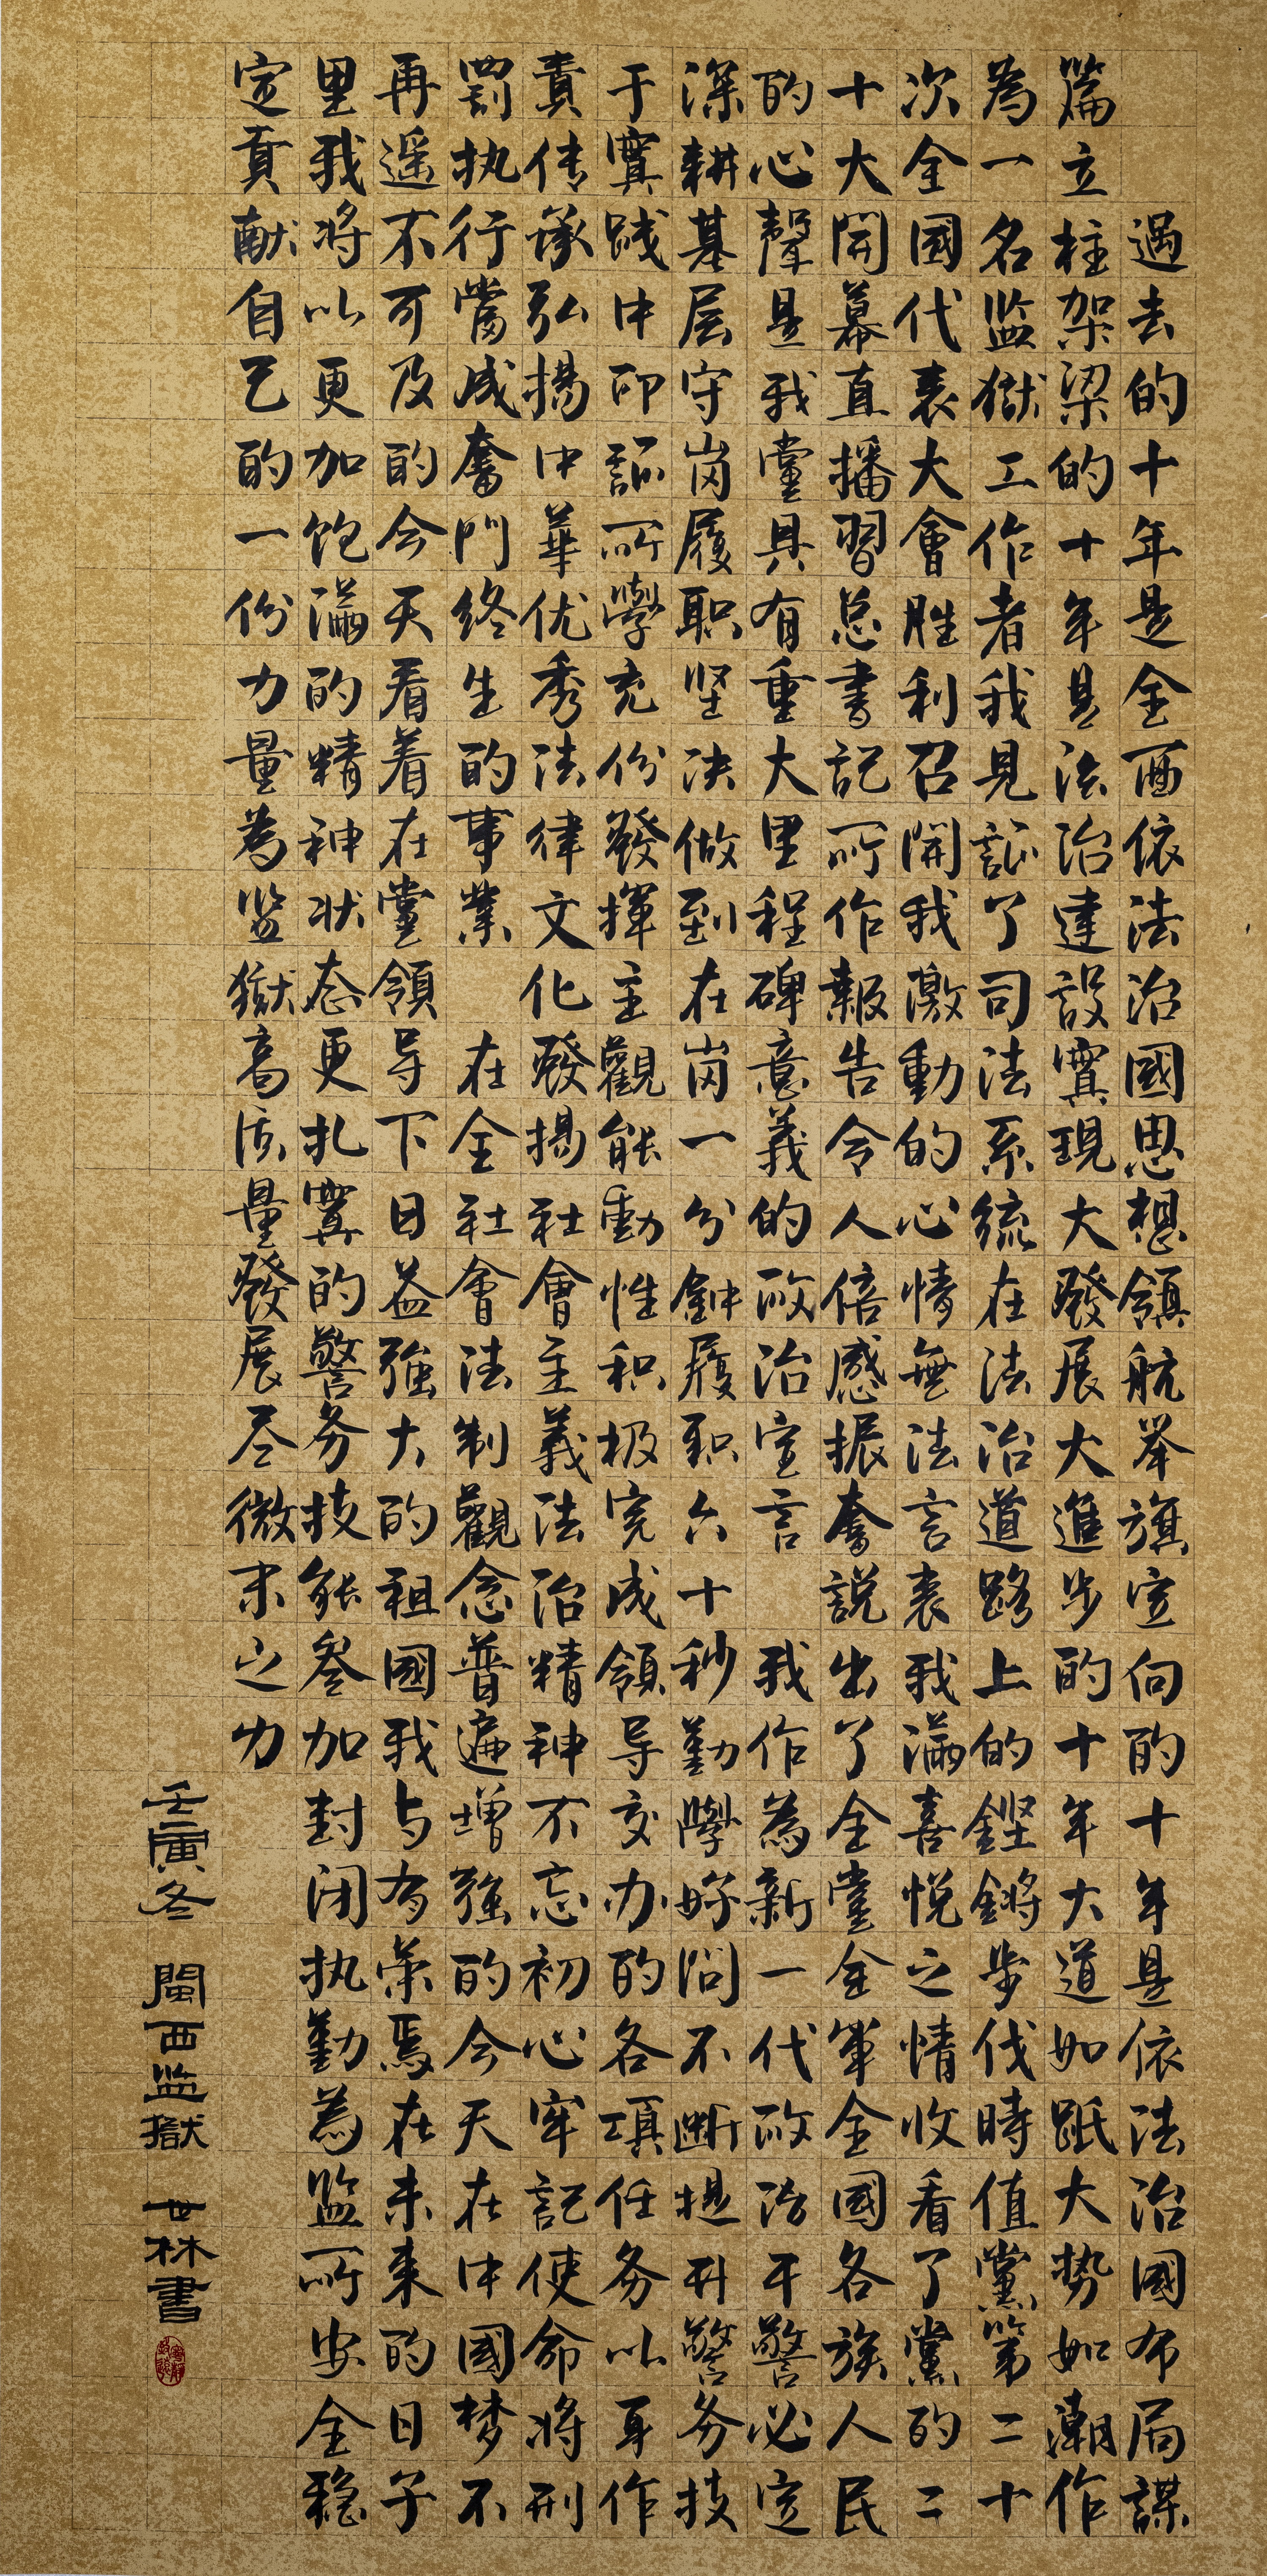 過去的十年是全面依法治國思想領航举旗定向的十年是依法治國布局謀
篇立柱架梁的十年是法治建設實現大發展大進步的十年大道如砥大势如潮作
為一名监獄工作者我見証了司法系統在法治道路上的鏗鏘步伐時值黨第二十
次全國代表大會胜利召開我激動的心情無法言表我滿喜悦之情收看了黨的二
十大開幕直播習总書記所作報告令人倍感振奮説出了全黨全軍全國各族人民
的心聲是我黨具有重大里程碑意義的政治宣言 我作為新一代政治干警必定
深耕基层守岗履职坚决做到在岗一分鈡履职六十秒勤學好問不断提升警务技
于實践中印証所學充份發揮主觀能動性积极完成領导交办的各項任务以耳作
責传承弘揚中華优秀法律文化發揚社會主義法治精神不忘初心牢記使命将刑
罰执行當成奮鬥终生的事業 在全社會法制觀念普遍增強的今天在中國梦不
再遥不可及的今天看着在黨領导下日益強大的祖國我与有荣焉在未来的日子
里我将以更加饱滿的精神状态更扎實的警务技能叁加封闭执勤為监所安全稳
定貢献自己的一份力量為监獄高质量發展尽微末之力
壬寅冬 閩西监獄 世林書